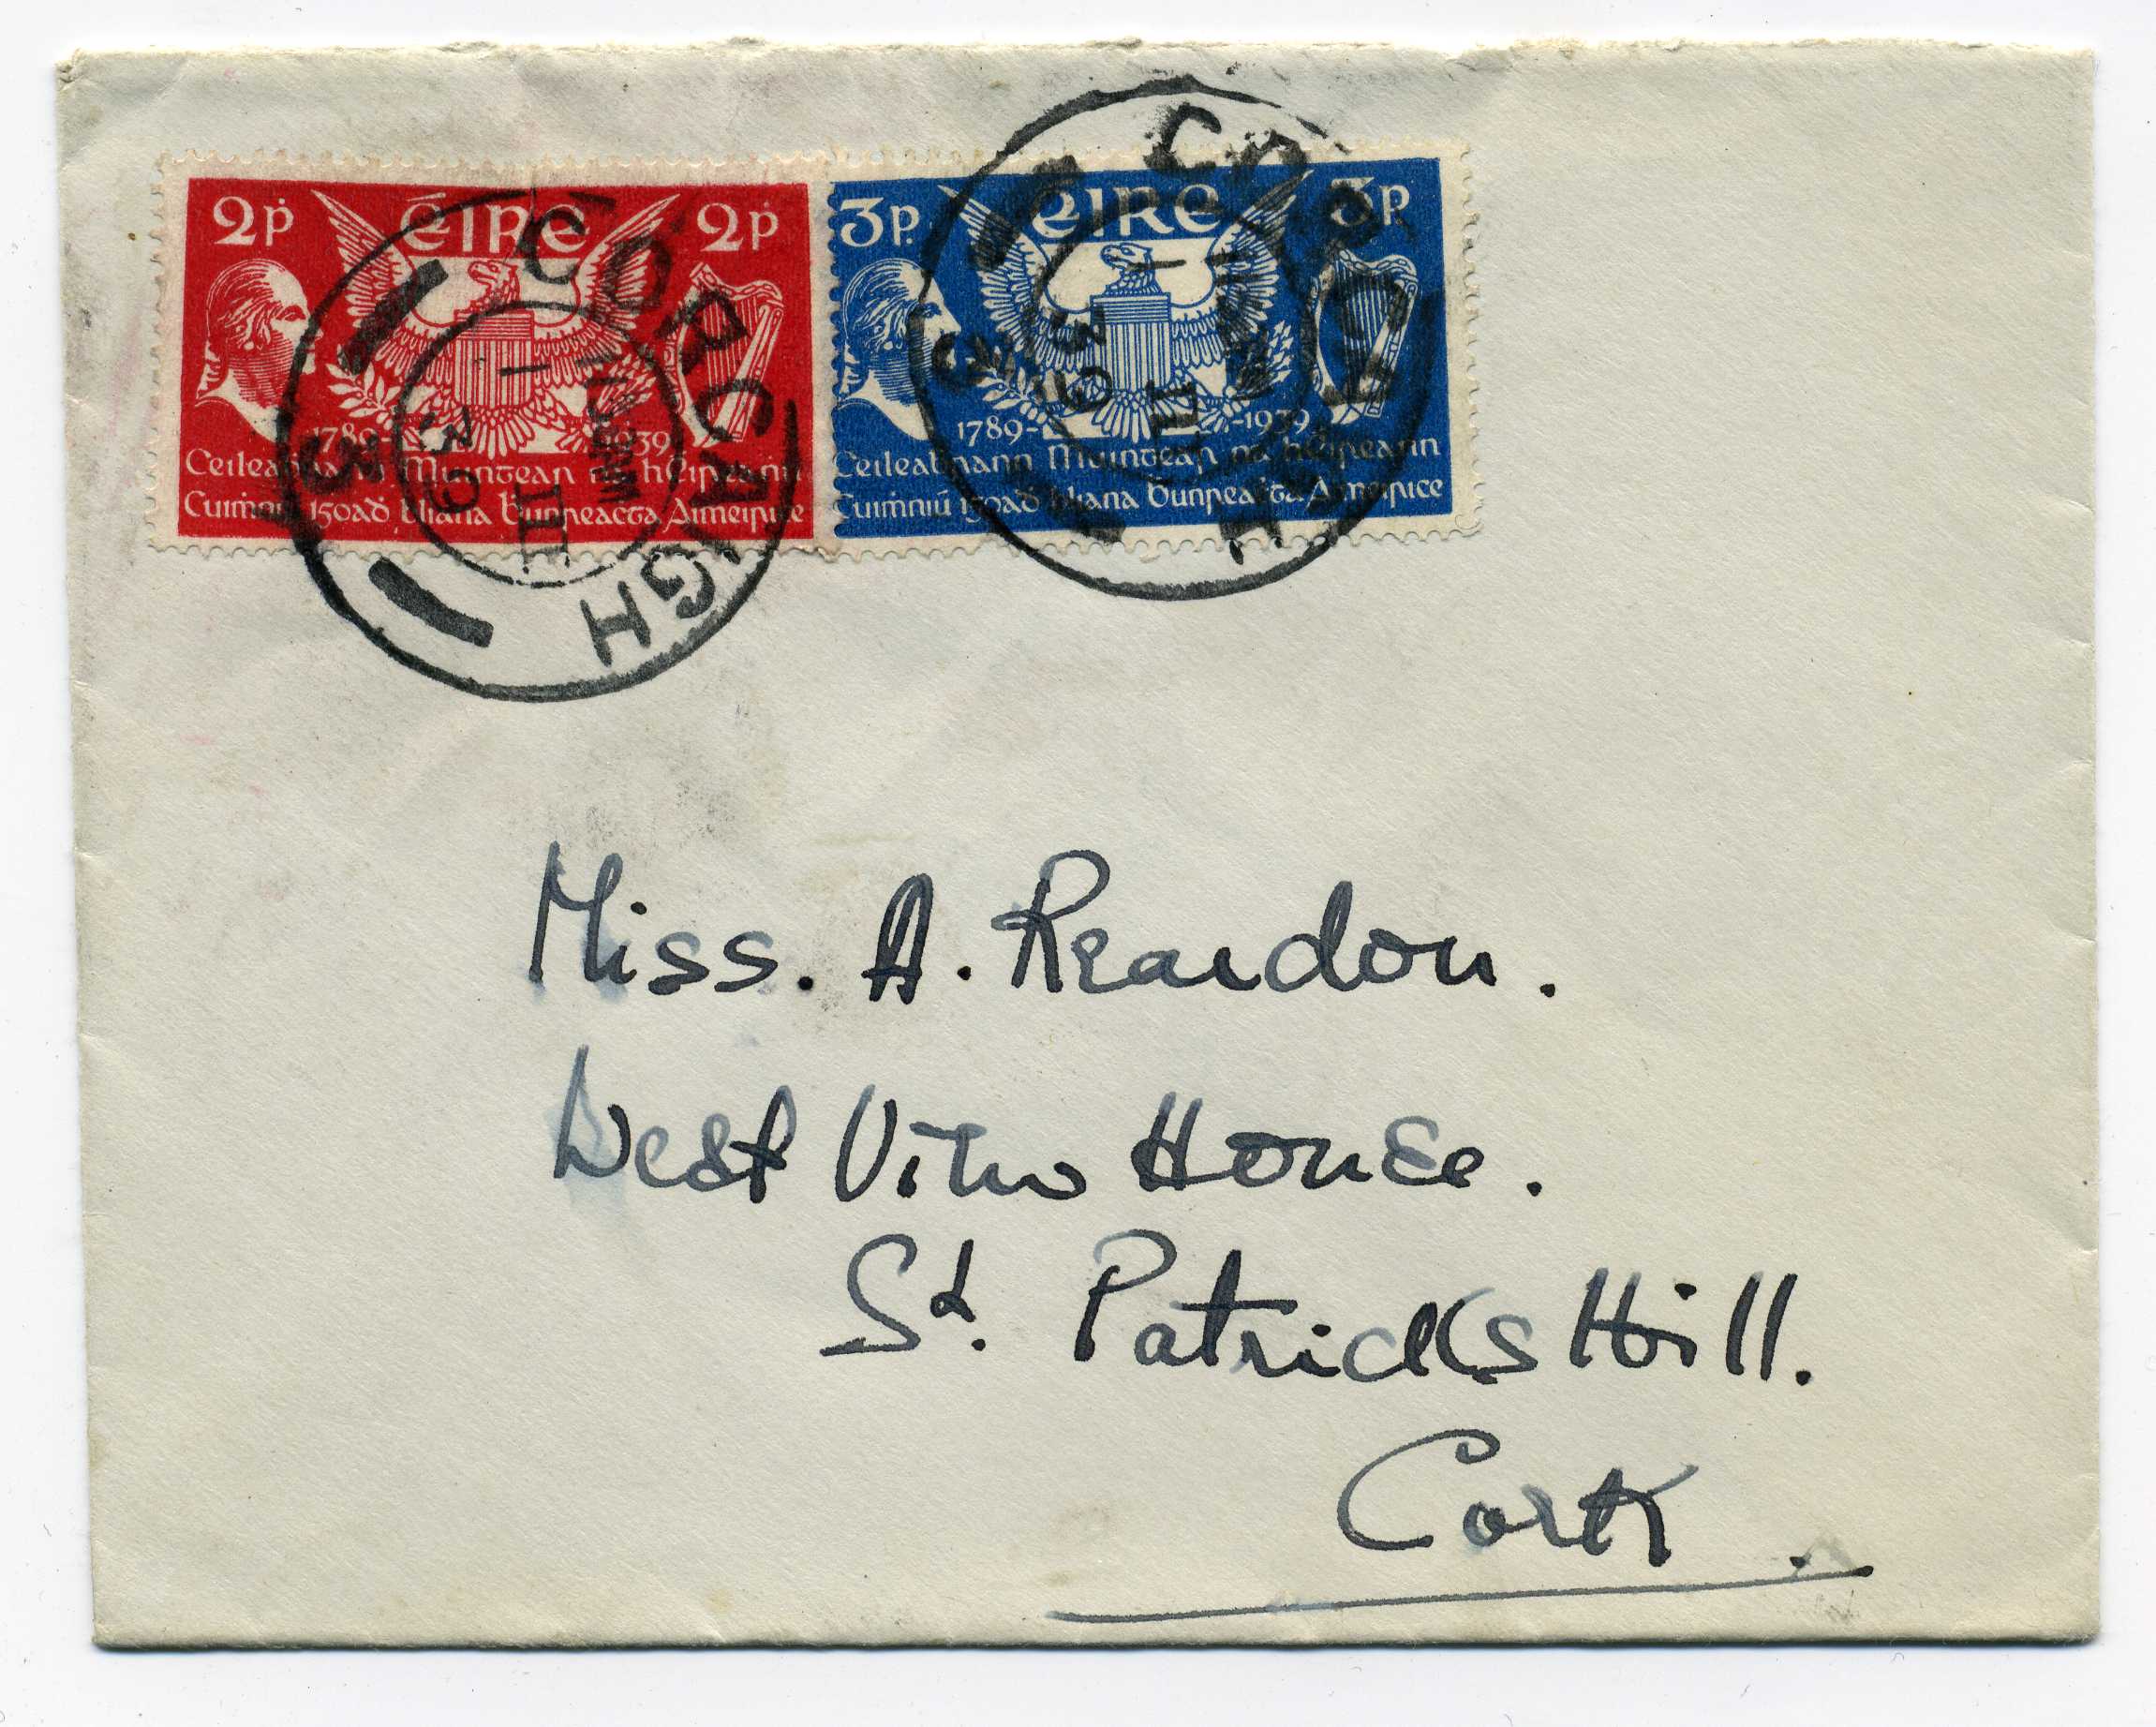 2ṗ ÉIRE 2ṗ
1789-1939
Ceileabhrann Muintear na hÉireann
Cuiṁniú 150aḋ bliana Bunreaċta Aimeirice
3p. ÉIRE 3p
1789-1939
Ceileabhrann Muintear na hÉireann
Cuiṁniú 150aḋ bliana Bunreaċta Aimeirice
CORCAIGH
1130AM
1 III
39
3
CORCAIGH
1 III
39
Miss. A. Reardon.
West View House.
St. Patricks Hill.
Cork.